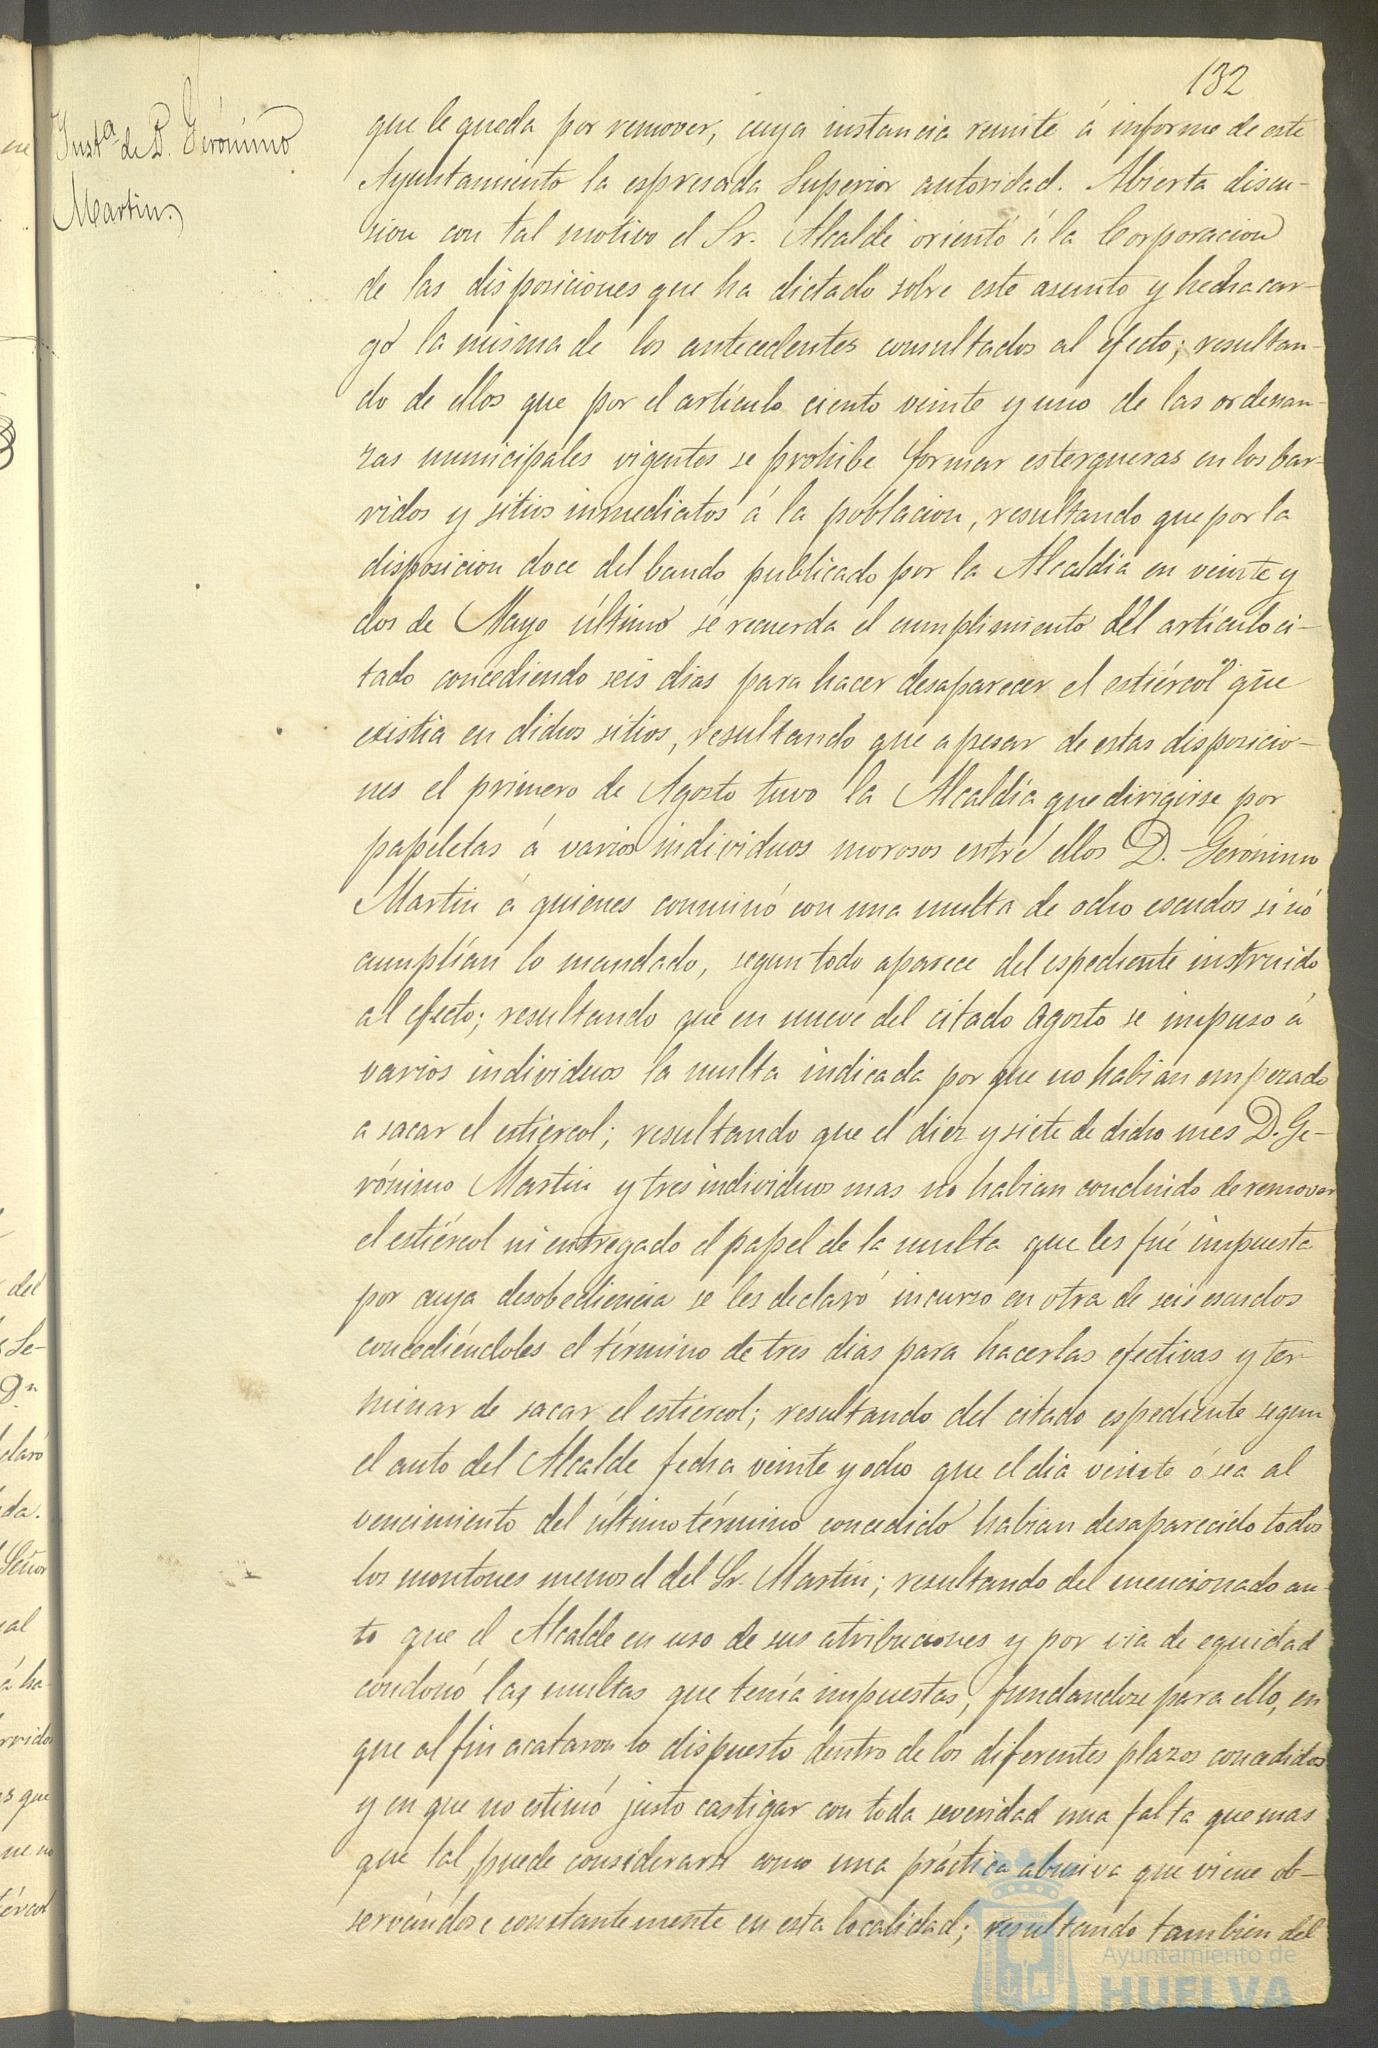 132
Instª de D. Gerónimo
Martin.
que le queda por remover, cuya instancia remite á informe de este
Ayuntamiento la espresada Superior autoridad. Abierta discu-
sion con tal motivo el Sr. Alcalde orientó á la Corporacion
de las disposiciones que ha dictado sobre este asunto y hecha car-
go la misma de los antecedentes consultados al efecto; resultan-
do de ellos que por el artículo ciento veinte y uno de las ordenan-
zas municipales vigentes se prohibe formar estergueras en los bar-
vidos y sitios inmediatos á la poblacion, resultando que por la
disposicion doce del bando publicado por la Alcaldia en veinte y
dos de Mayo último se recuerda el cumplimiento del artículo ci-
tado concediendo seis dias para hacer desaparecer el estiércol que
existia en dichos sitios, resultando que apesar de estas disposicio-
nes el primero de Agosto tuvo la Alcaldía que dirigirse por
papeletas á varios individuos morosos entre ellos D. Gerónimo
Martin á quienes conminó con una multa de ocho escudos si nó
cumplían lo mandado, segun todo aparece del espediente instruido
al efecto; resultando que en nueve del citado Agosto se impuso á
varios individuos la multa indicada por que no habian empezado
a sacar el estiercol; resultando que el diez y siete de dicho mes D. Ge-
rónimo Martin y tres individuos mas no habian concluido de remover
el estiércol ni entregado el papel de la multa que les fué impuesta
por cuya desobediencia se les declaró incurso en otra de seis escudos
concediéndoles el término de tres dias para hacerlas efectivas y ter-
minar de sacar el estiercol; resultando del citado espediente segun
el auto del Alcalde fecha veinte y ocho que el dia veinte ó sea al
vencimiento del último término concedido habian desaparecido todos
los montones menos el del Sr. Martin; resultando del mencionado au-
to que el Alcalde en uso de sus atribuciones y por via de equidad
condonó las multas que tenía impuestas, fundandose para ello, en
que al fin acataron lo dispuesto dentro de los diferentes plazos concedidos
y en que no estimó justo castigar con toda severidad una falta que mas
que tal, puede considerarse como una práctica abusiva que viene ob-
servándose constantemente en esta localidad; resultando tambien del
Ayuntamiento de
HUELVA